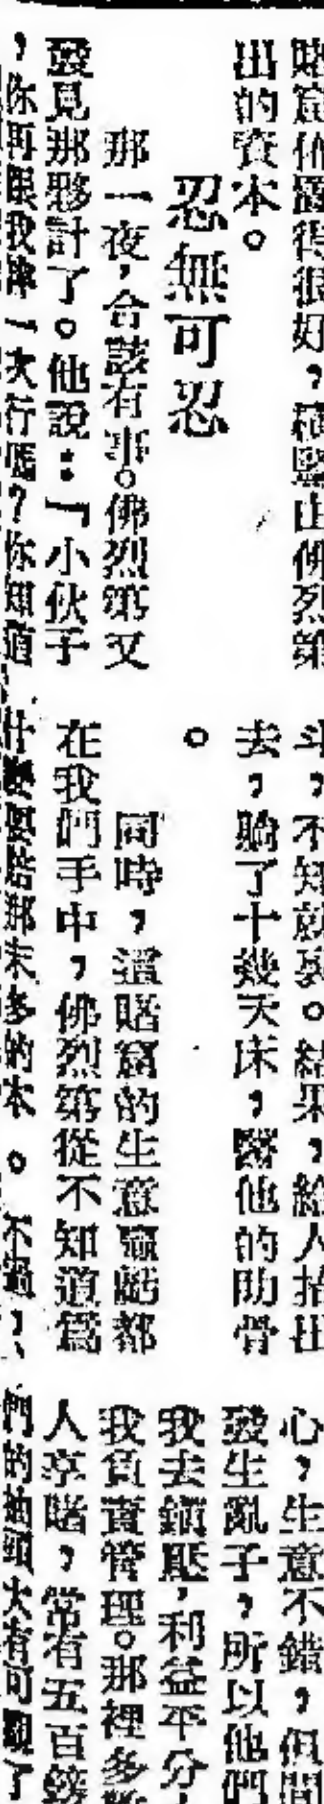 賭窟佈置得很好，積蓄由佛烈第
出的資本。
忍無可忍
那一夜，合該有事。佛烈第又
發見那夥計了。他說：「小伙子
，你再跟我陣一次行嗎？你知道
斗，不知就裏。結果，給人抬出
去，躺了十幾天床，醫他的肋骨
。
同時，這賭窟的生意贏虧都
在我們手中，佛烈第從不知道爲
什麼要賠那末多的本。不過，
心，生意不錯，但間
發生亂子，所以他們
我去鎭壓，利益平分
我負責管理。那裡多
人享賭，常有五百
們的抽頭大有可觀了